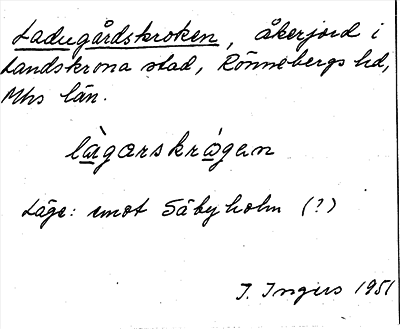 Ladugårdskroken, åkerjord i
Landskrona stad, Rönnebergs hd,
Mhs län.
làgarskrògen
Läge: emot Säbyholm (?)
I. Ingers 1951